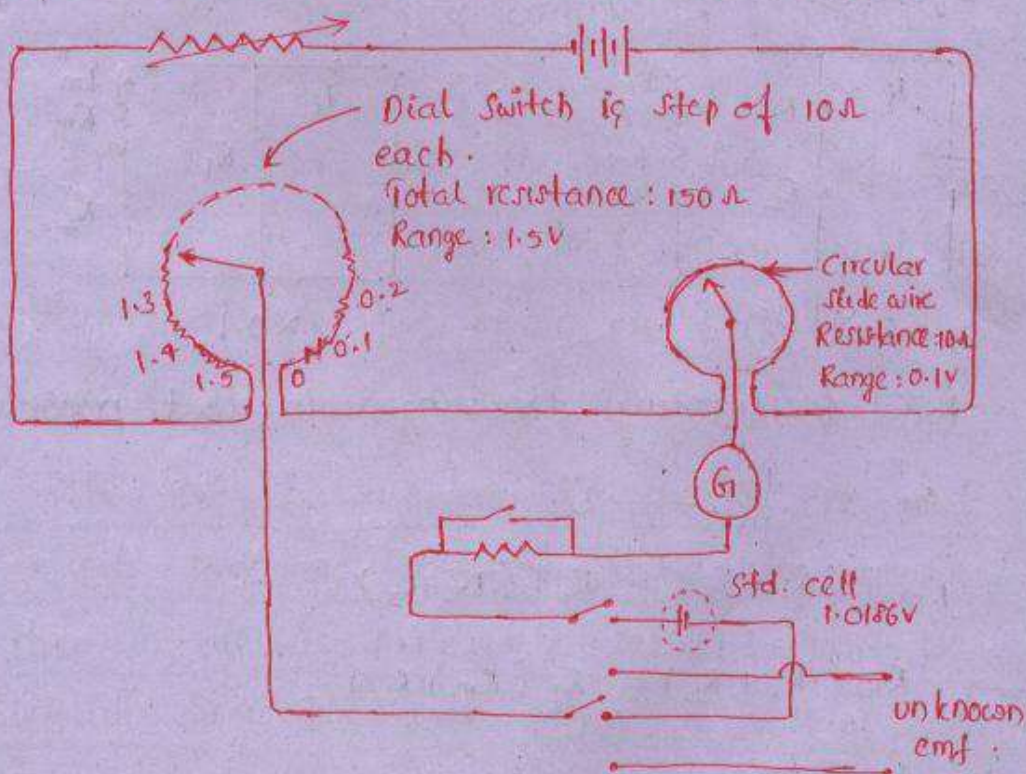 Dial switch is step of 10Ω
each.
Total resistance : 150 Ω
Range : 1.5V
1.3
1.4
1.5
0
0.1
0.2
Circular
slide wire
Resistance : 10Ω
Range : 0.1V
G
Std. cell
1.0186V
unknown
emf :